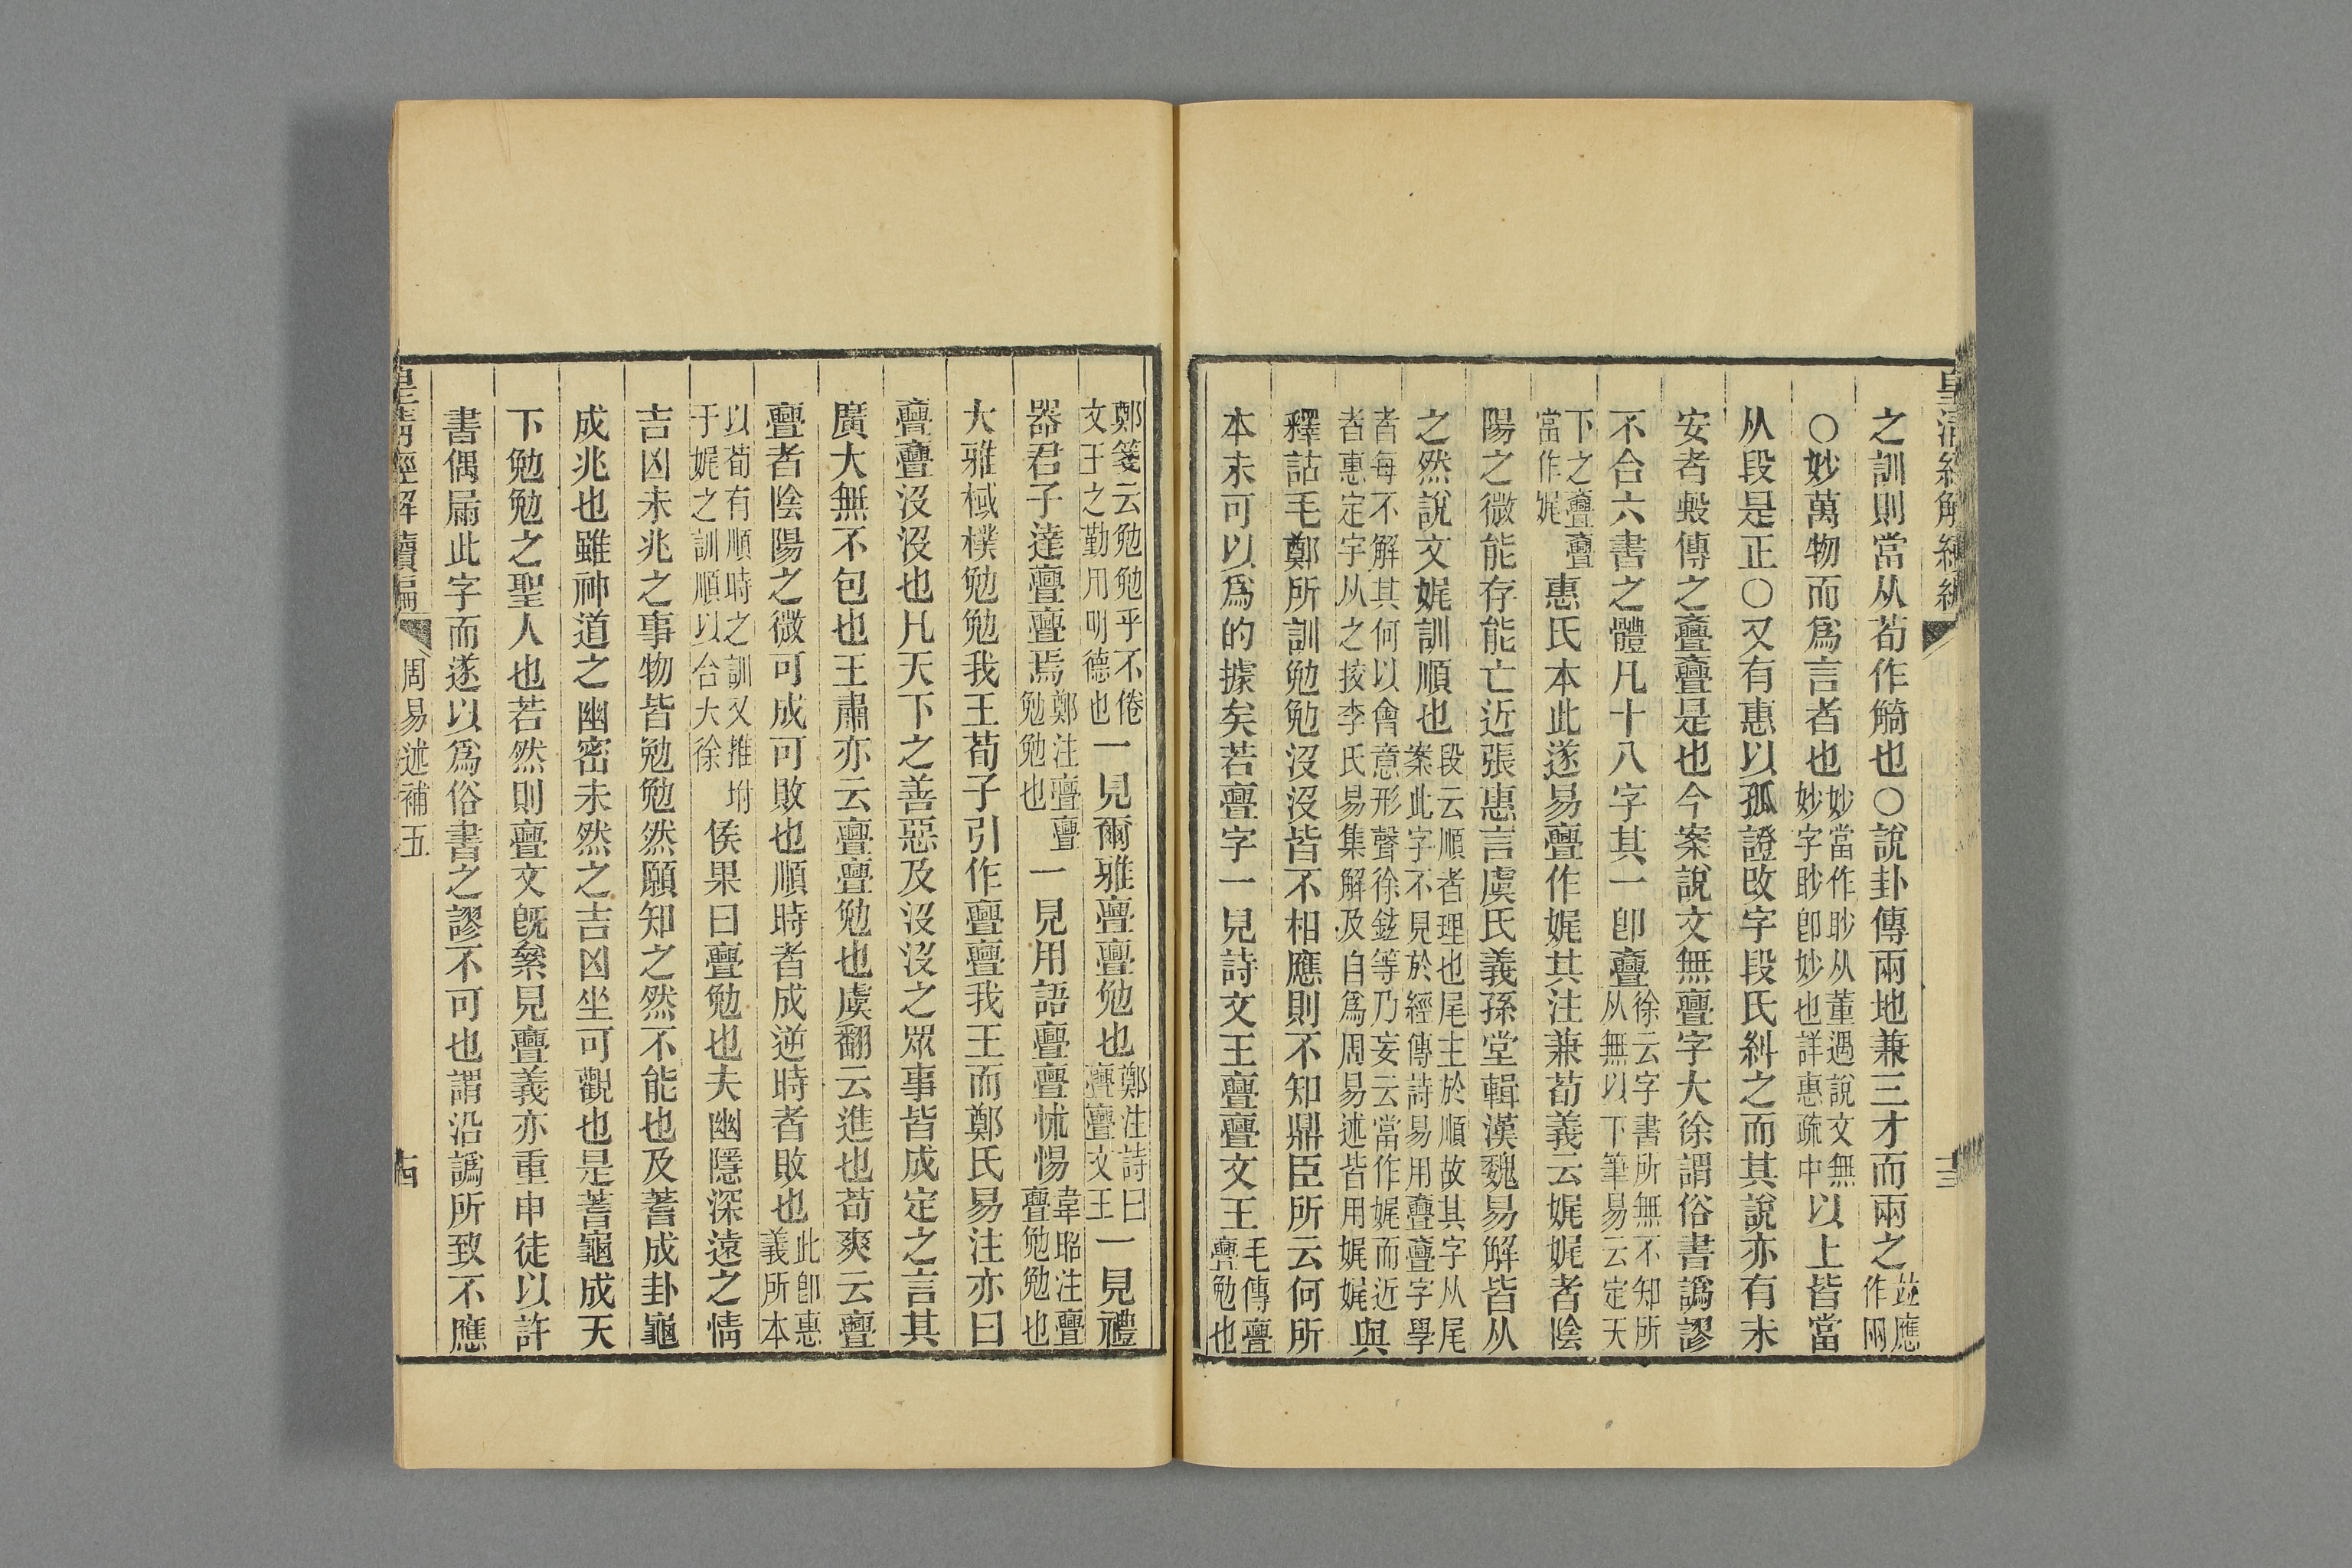 皇清經解續編
十三
之訓則當从荀作觭也○說卦傳兩地兼三才而兩之竝應作㒳
○妙萬物而爲言者也妙當作眇从董遇說文無妙字眇卽妙也詳惠疏中以上皆當
从段是正○又有惠以孤證改字段氏糾之而其說亦有未
安者毄傳之亹亹是也今案說文無亹字大徐謂俗書譌謬
不合六書之體凡十八字其一卽亹徐云字書所無不知所从無以下筆易云定天
下之亹亹當作娓惠氏本此遂易亹作娓其注兼荀義云娓娓者陰
陽之微能存能亡近張惠言虞氏義孫堂輯漢魏易解皆从
之然說文娓訓順也段云順者理也尾主於順故其字从尾案此字不見於經傳詩易用亹亹字學
者每不解其何以會意形聲徐鉉等乃妄云當作娓而近者惠定宇从之挍李氏易集解及自爲周易述皆用娓娓與
釋詁毛鄭所訓勉勉沒沒皆不相應則不知鼎臣所云何所
本未可以爲的據矣若亹字一見詩文王亹亹文王毛傳亹亹勉也
鄭箋云勉勉乎不倦文王之勤用明德也一見爾雅亹亹勉也鄭注詩曰亹亹文王一見禮
器君子達亹亹焉鄭注亹亹勉勉也一見用語亹亹怵惕韋昭注亹亹勉勉也
大雅棫樸勉勉我王荀子引作亹亹我王而鄭氏易注亦曰
亹亹沒沒也凡天下之善惡及沒沒之眾事皆成定之言其
廣大無不包也王肅亦云亹亹勉也虞翻云進也荀爽云亹
亹者陰陽之微可成可敗也順時者成逆時者敗也此卽惠義所本
以荀有順時之訓又推坿于娓之訓順以合大徐侯果曰亹勉也夫幽隱深遠之情
吉凶未兆之事物皆勉勉然願知之然不能也及蓍成卦龜
成兆也雖神道之幽密未然之吉凶坐可觀也是蓍龜成天
下勉勉之聖人也若然則亹文旣絫見亹義亦重申徒以許
書偶屚此字而遂以爲俗書之謬不可也謂沿譌所致不應
皇淸經解續編
周易述補五
十四